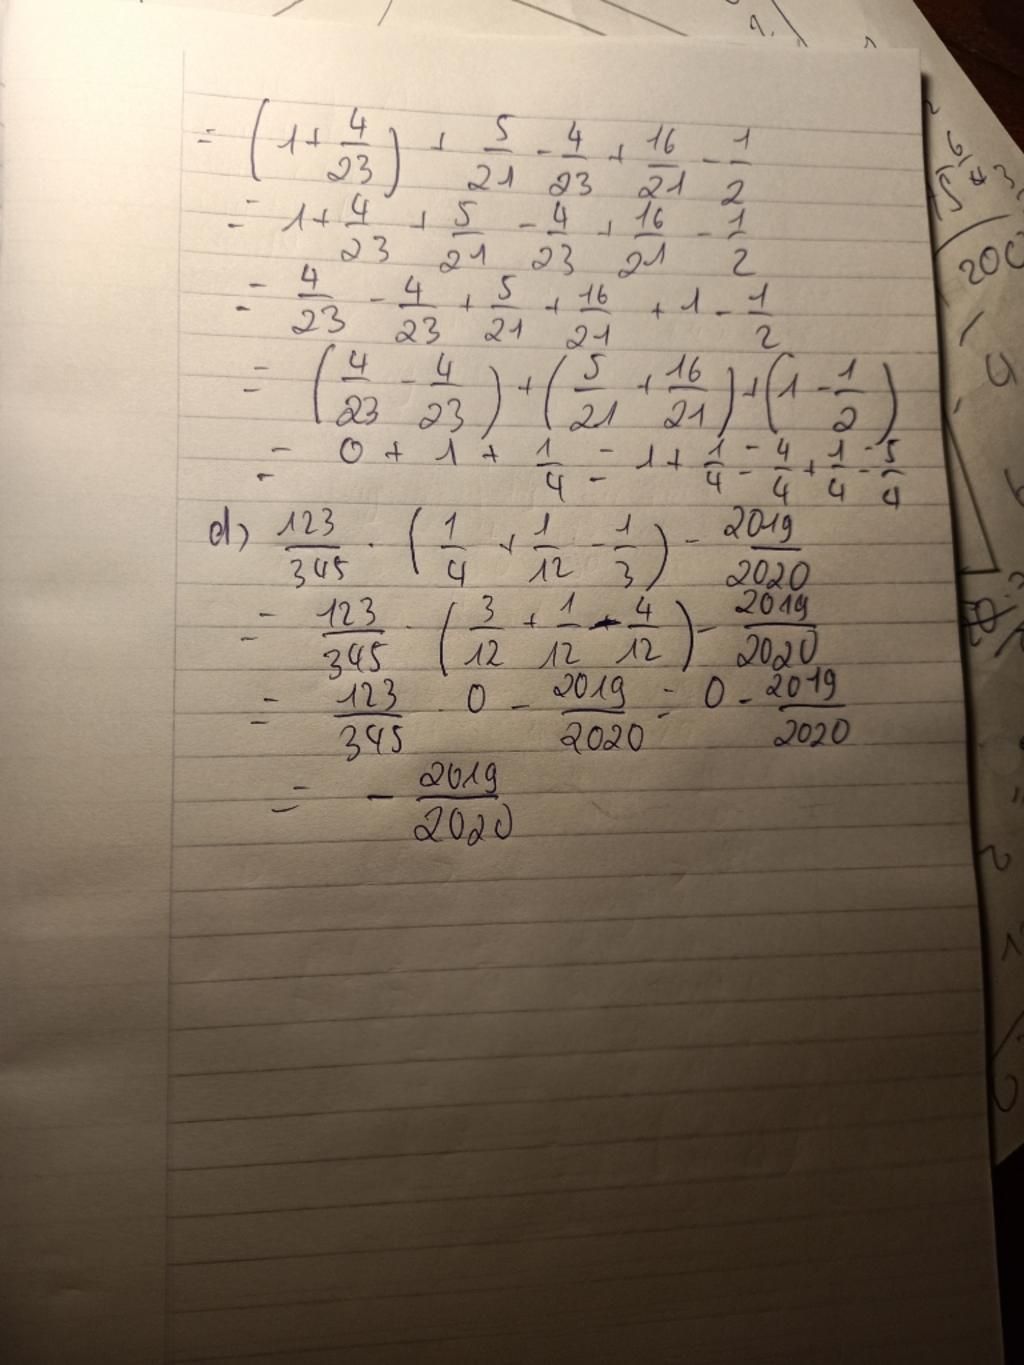 = (1 + 4/23) + 5/21 - 4/23 + 16/21 - 1/2
= 1 + 4/23 + 5/21 - 4/23 + 16/21 - 1/2
= 4/23 - 4/23 + 5/21 + 16/21 + 1 - 1/2
= (4/23 - 4/23) + (5/21 + 16/21) + (1 - 1/2)
= 0 + 1 + 1/4 = 1 + 1/4 = 4/4 + 1/4 = 5/4
d) 123/345 . (1/4 + 1/12 - 1/3) - 2019/2020
= 123/345 . (3/12 + 1/12 - 4/12) - 2019/2020
= 123/345 . 0 - 2019/2020 = 0 - 2019/2020
= - 2019/2020
200